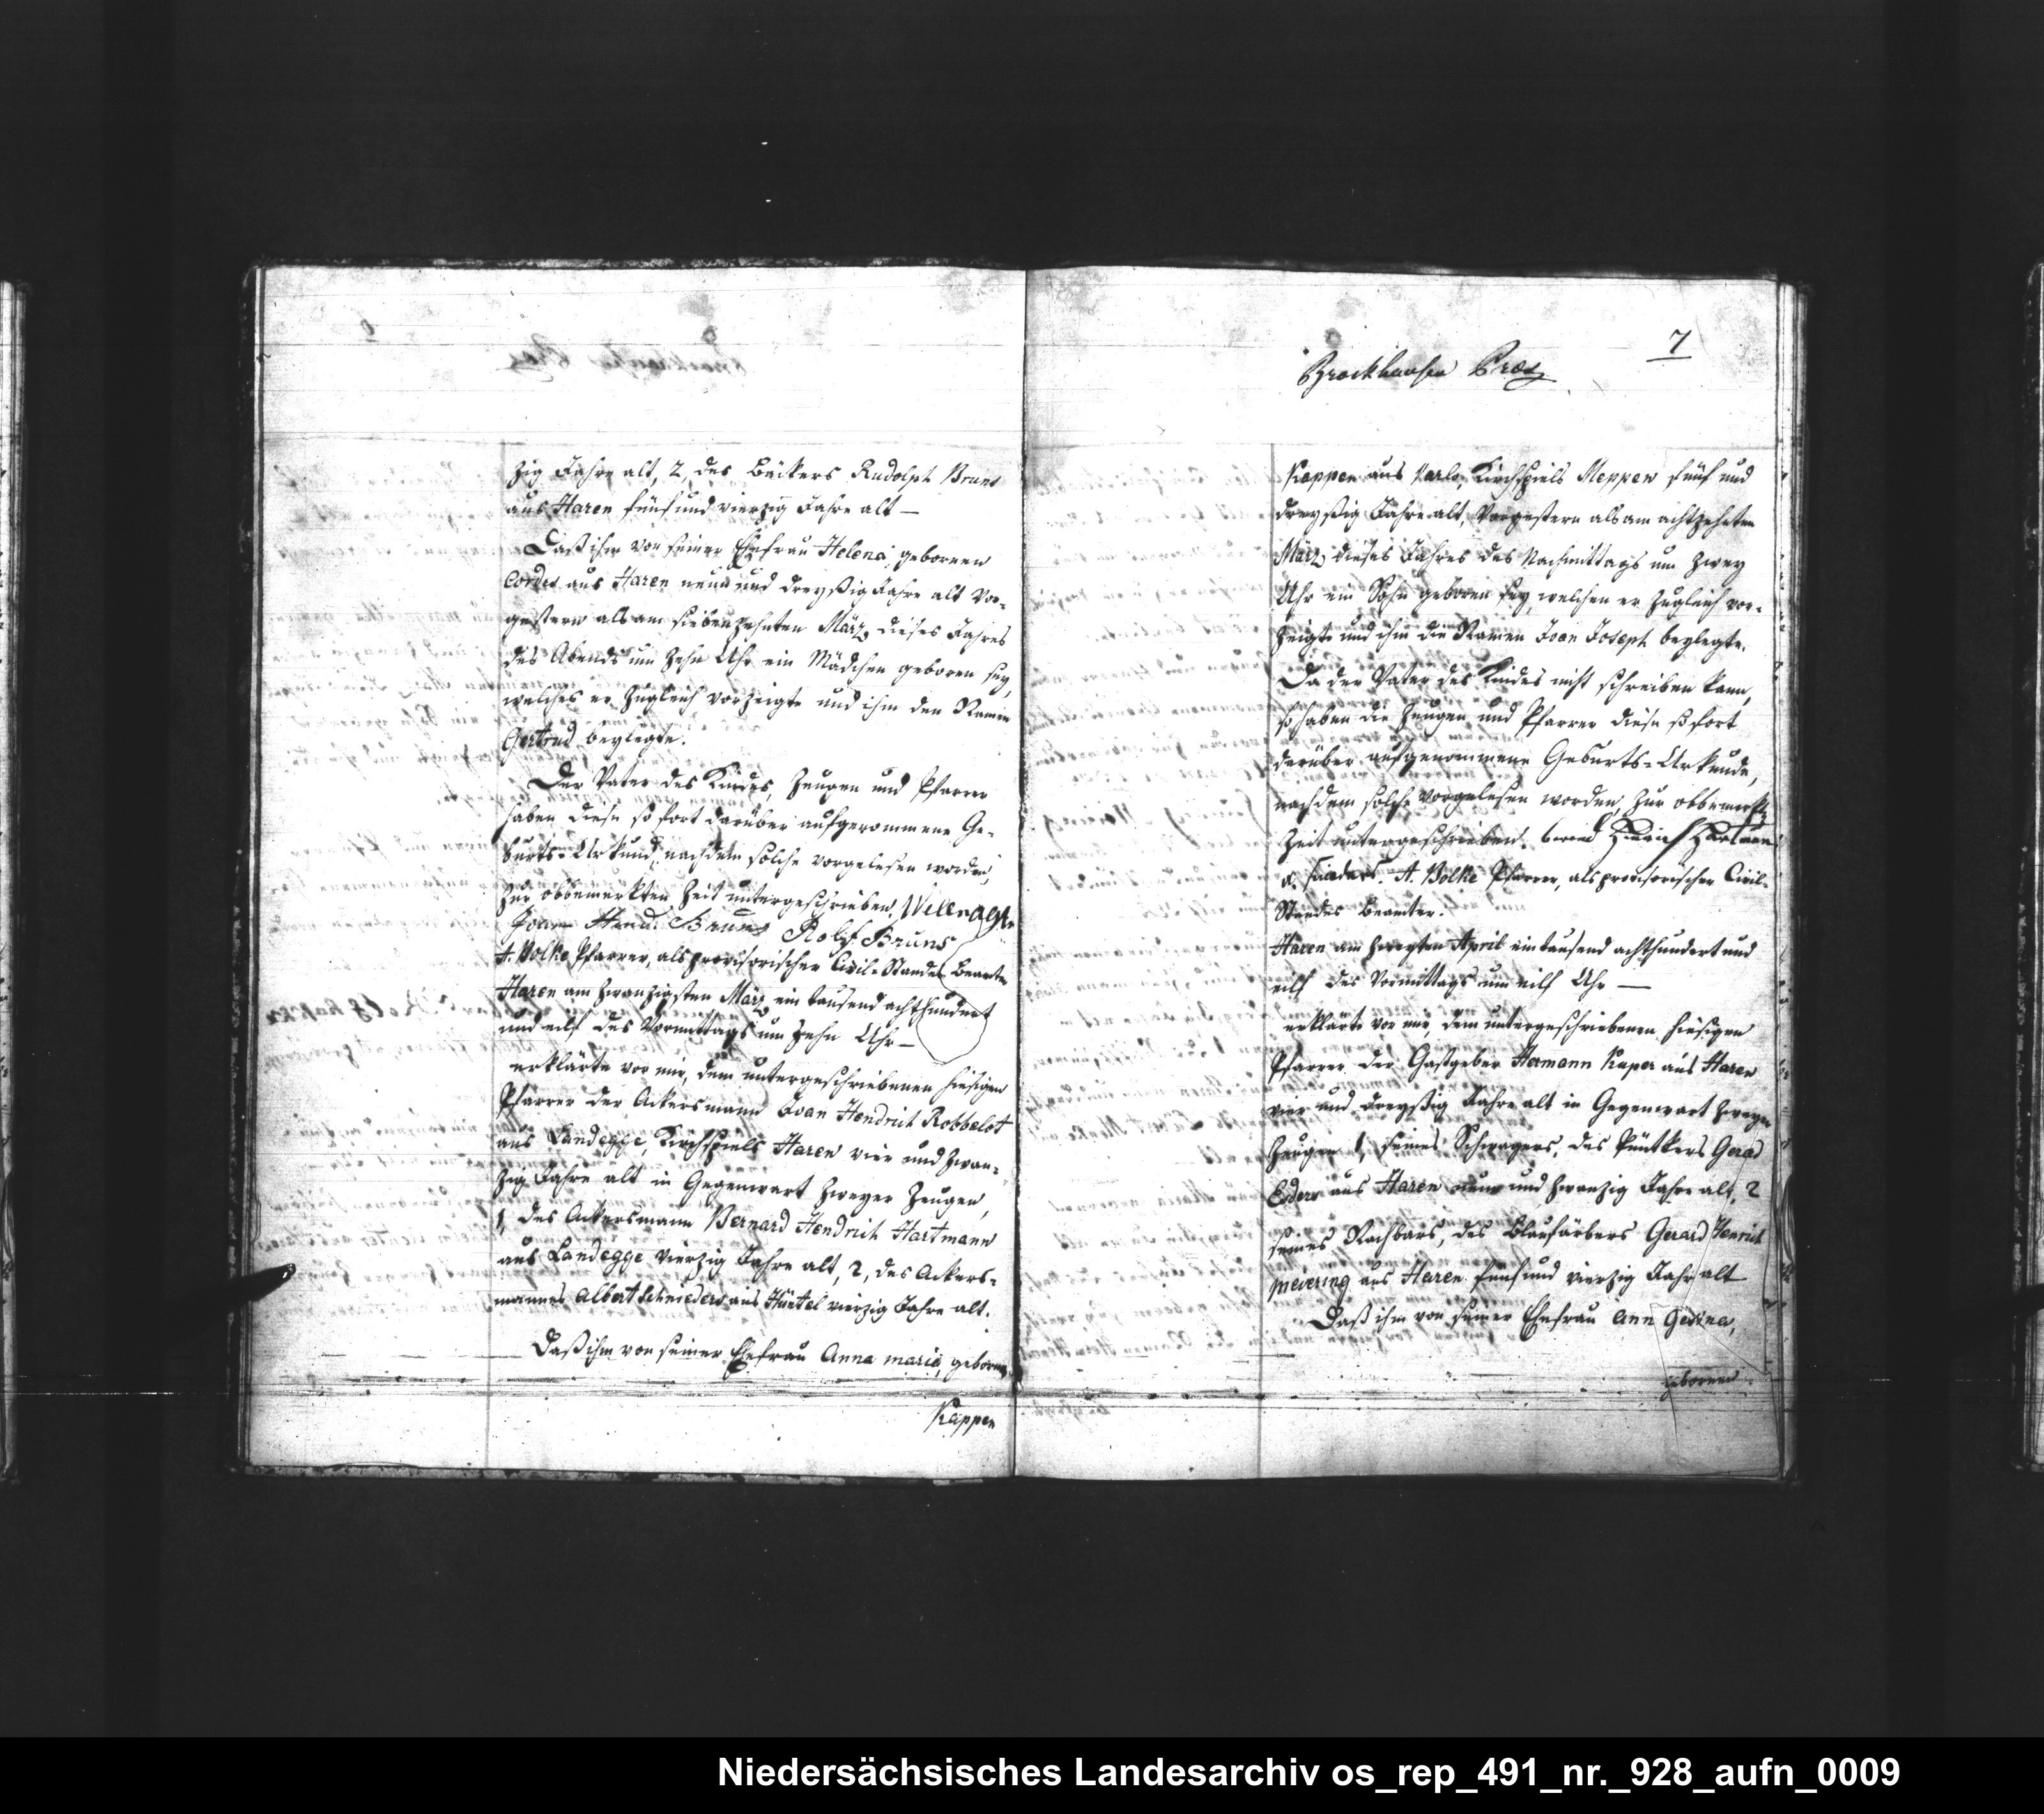 zig Jahre alt, 2, des Bäckers Rudolph Bruns
aus Haren fünf und vierzig Jahre alt —
Daß ihm von seiner Ehefrau Helena, geborenen
Cordes aus Haren neun und dreyßig Jahre alt vor-
gestern als am siebenzehnten März dieses Jahres
des Abends um zehn Uhr ein Mädchen geboren sey,
welches er zugleich vorzeigte und ihm den Namen
Gertrud beylegte.
Der Vater des Kindes, Zeugen und Pfarrer
haben diese so fort darüber aufgenommene Ge-
burts-Urkund, nachdem solche vorgelesen worden,
zur obbemerkten Zeit untergeschrieben.
Joan Hend. Bruns Rolf Bruns
A. Bolke Pfarrer, als provisorischer Civil-Standes Beamte
Haren am zwanzigsten März ein tausend achthundert
und eilf des Vormittags um zehn Uhr —
erklärte vor mir, dem untergeschriebenen hiesigen
Pfarrer der Ackersmann Joan Hendrich Robbelot
aus Landegge, Kirchspiels Haren vier und zwan-
zig Jahre alt in Gegenwart zweyer Zeugen,
1, des Ackersmann Bernard Hendrich Hartmann
aus Landegge vierzig Jahre alt, 2, des Ackers-
mannes Albert Schnieders aus Hüntel vierzig Jahre alt.
Daß ihm von seiner Ehefrau Anna maria, geborenen
Kappen
7
Brockhausen Præs
Kappen aus Varlo, Kirchspiels Meppen fünf und
dreyßig Jahre alt, vorgestern als am achtzehnten
März dieses Jahres des Nachmittags um zwey
Uhr ein Sohn geboren sey, welchen er zugleich vor-
zeigte und ihm die Namen Joan Joseph beylegte.
Da der Vater des Kindes nicht schreiben kann,
so haben die Zeugen und Pfarrer diese so fort
darüber aufgenommene Geburts-Urkunde,
nachdem solche vorgelesen worden, zur obbemerkten
Zeit untergeschrieben. Hartman
A. Bolke Pfarrer, als provisorischer Civil-
Standes Beamter.
Haren am zweyten April ein tausend achthundert und
eilf des Vormittags um eilf Uhr —
erklärte vor mir, dem untergeschriebenen hiesigen
Pfarrer der Gastgeber Hermann Kaper aus Haren
vier und dreyßig Jahre alt in Gegenwart zweyer
Zeugen 1, seines Schwagers, des Püntkers Gerad
aus Haren neun und zwanzig Jahre alt, 2
seines Nachbars, des Blaufärbers Gerard Henrich
Meiering aus Haren fünf und vierzig Jahr alt
Daß ihm von seiner Ehefrau Ann Gesina,
geborenen
Niedersächsisches Landesarchiv os_rep_491_nr._928_aufn_0009